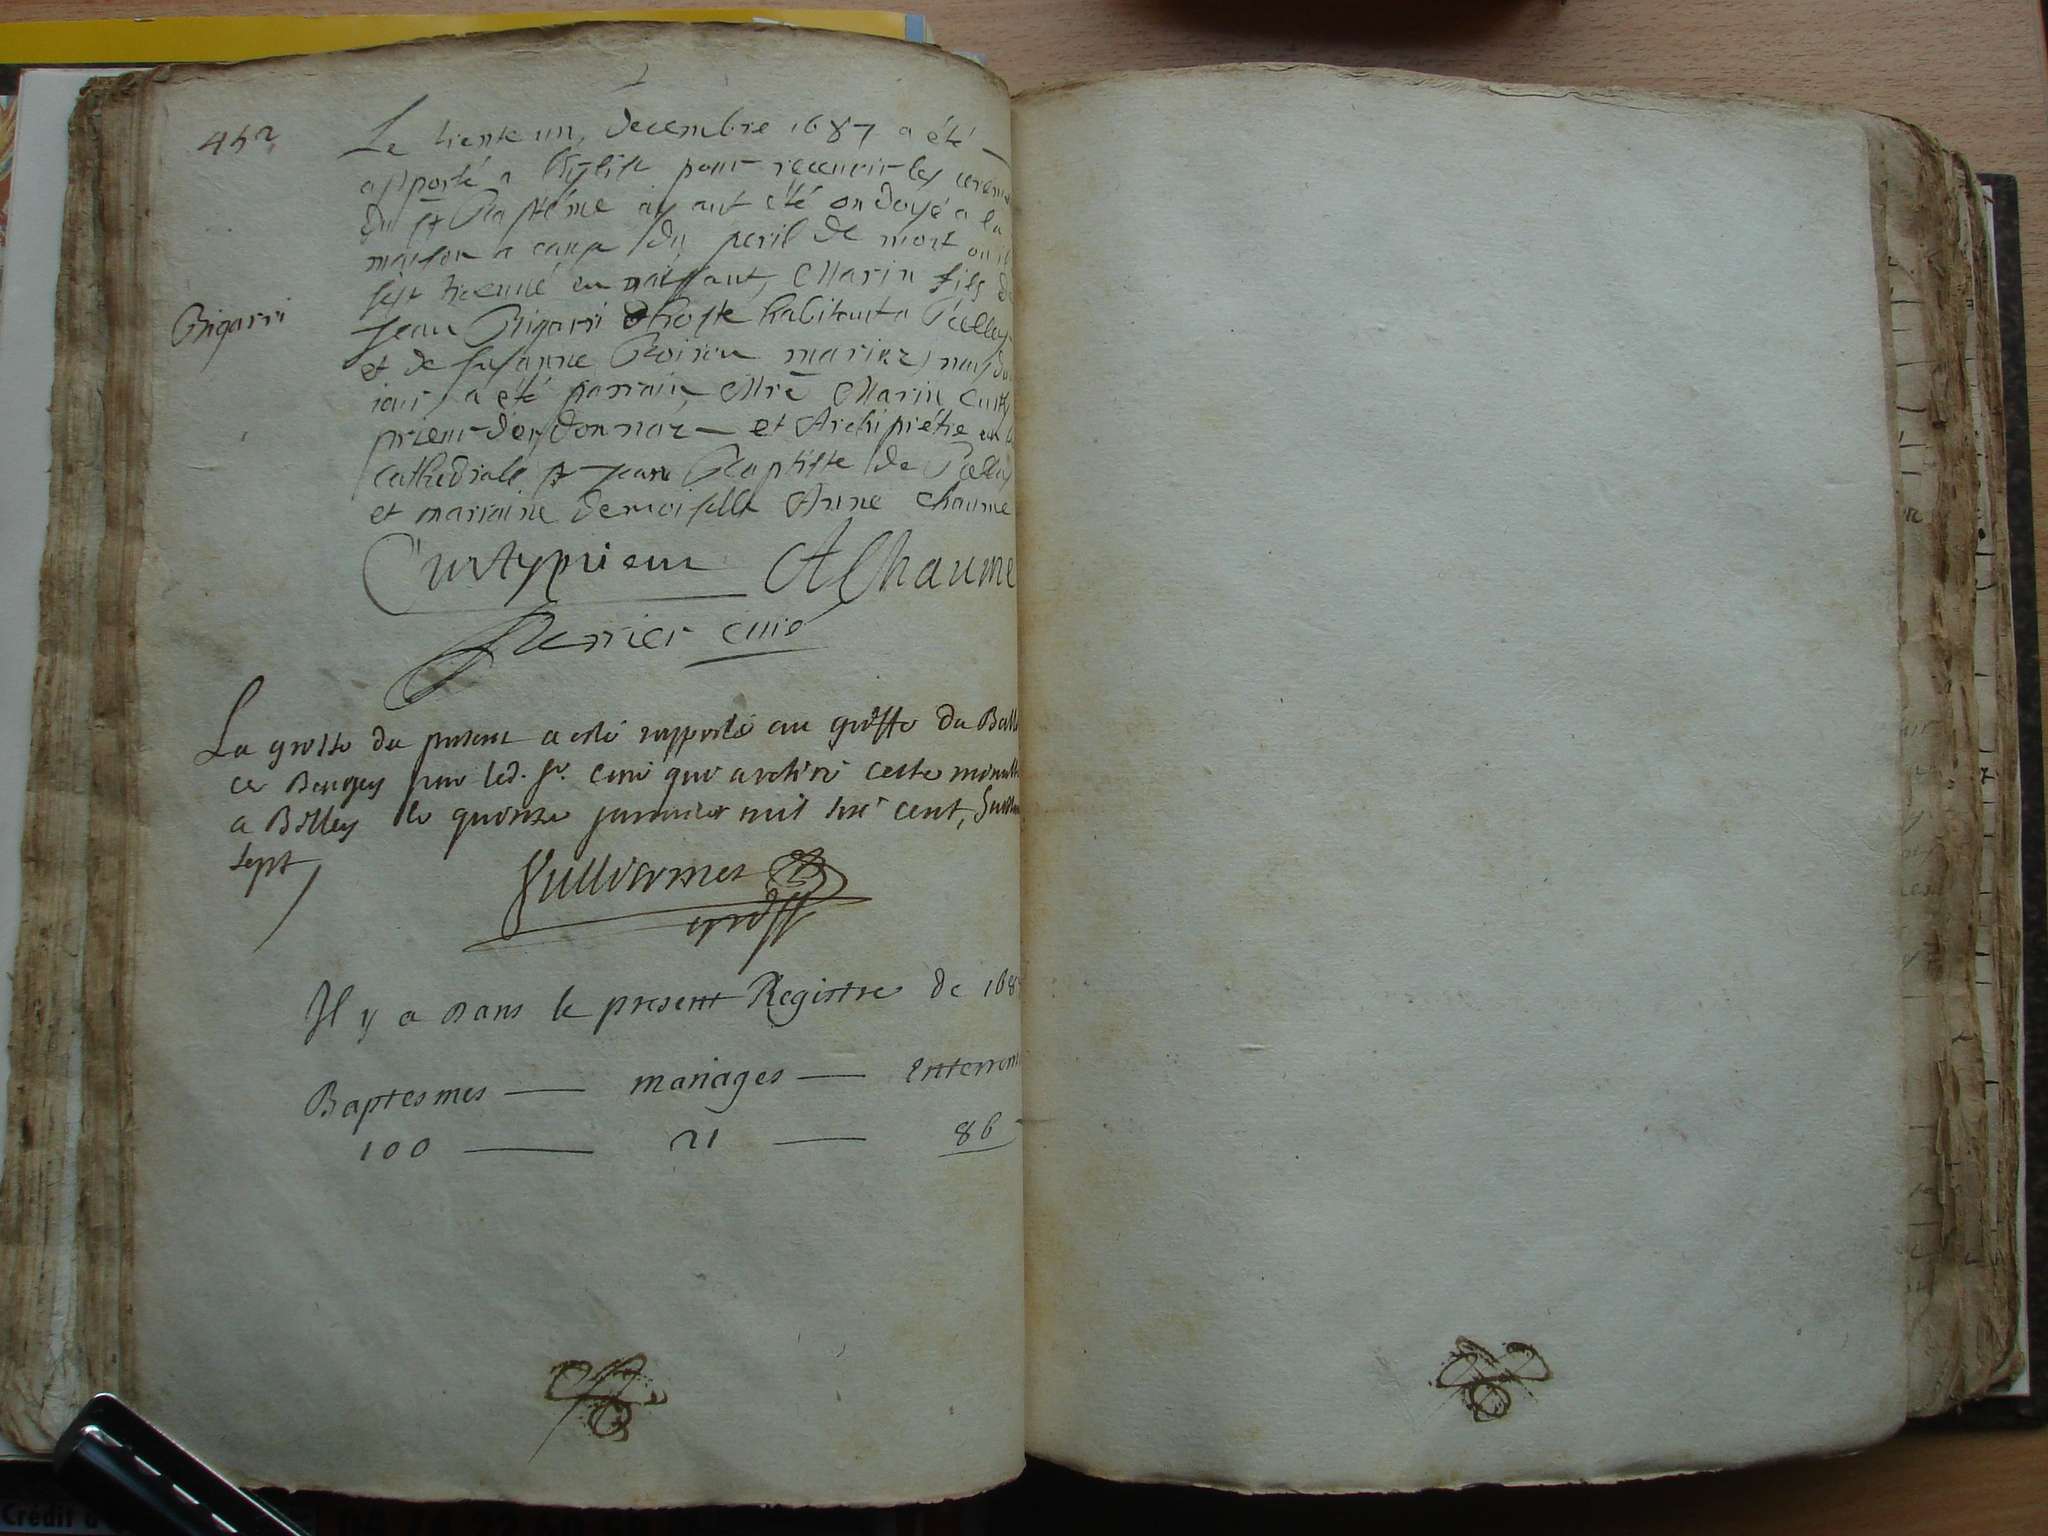 452
Le trente un, decembre 1687 a été
apporté a l'Eglise pour recevoir les cerem
du st Baptéme aÿant été ondoyé a la
maison a cause du peril de mort ou il
s'est trouvé en naissant, Marin fils de
Bigarri
Jean Bigarri hoste habitant a Belley
et de Susanne Boiron mariez, nay du
jour, a été parrain Mre Marin Curty
prieur d'ordonnaz et Archiprétre en la
cathedrale st Jean Baptiste de Belley
et marraine demoiselle Anne Chaume
Curty prieur AChaume
curé
La grosse du present a esté rapporté au greffe du Ball
ce Beugey par led. sr. curé qui a retiré cette minutte
a Belley le quinze janvier mil six cent, huitt
sept
Vulliermet
greff
Il y a Dans le present Registre de 168
Baptesmes — mariages — Enterrem
100 — 21 — 86
Crédit